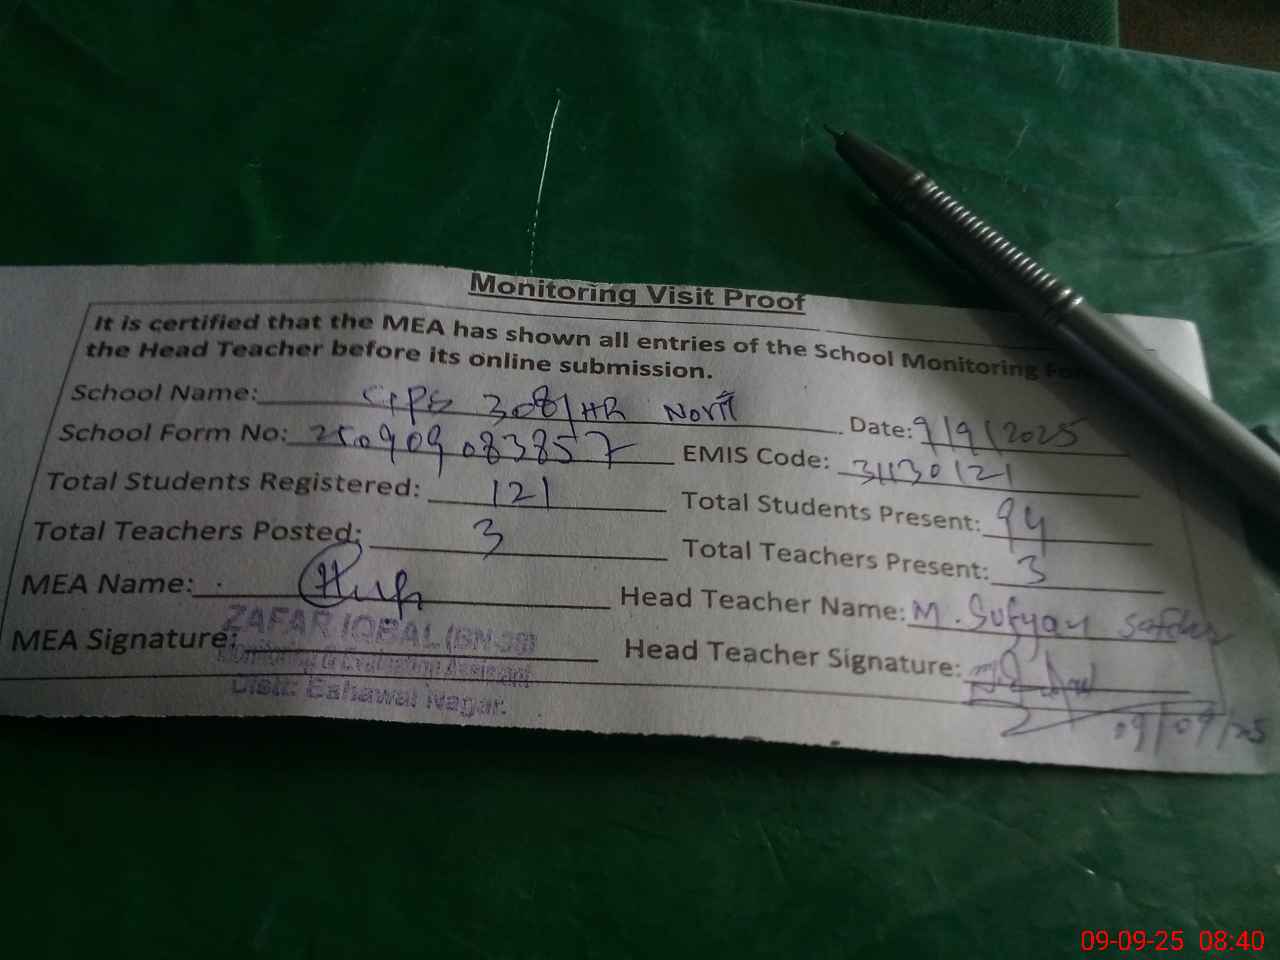 Monitoring Visit Proof
It is certified that the MEA has shown all entries of the School Monitoring
the Head Teacher before its online submission.
School Name: GPS 308/HR
Date: 9/9/2025
School Form No: 250909083857
EMIS Code: 31130121
Total Students Registered: 121
Total Students Present: 94
Total Teachers Posted: 3
Total Teachers Present: 3
MEA Name:
Head Teacher Name: M. Sufyan Safdar
ZAFAR IQBAL (BN-38)
MEA Signature:
Head Teacher Signature:
Monitoring & Evaluation Assistant
Distt: Bahawal Nagar.
09/09/25
09-09-25 08:40